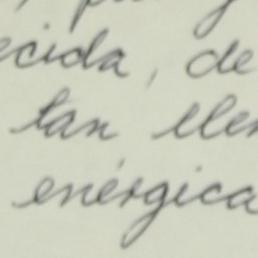 ecida, de
tan llen
enérgica